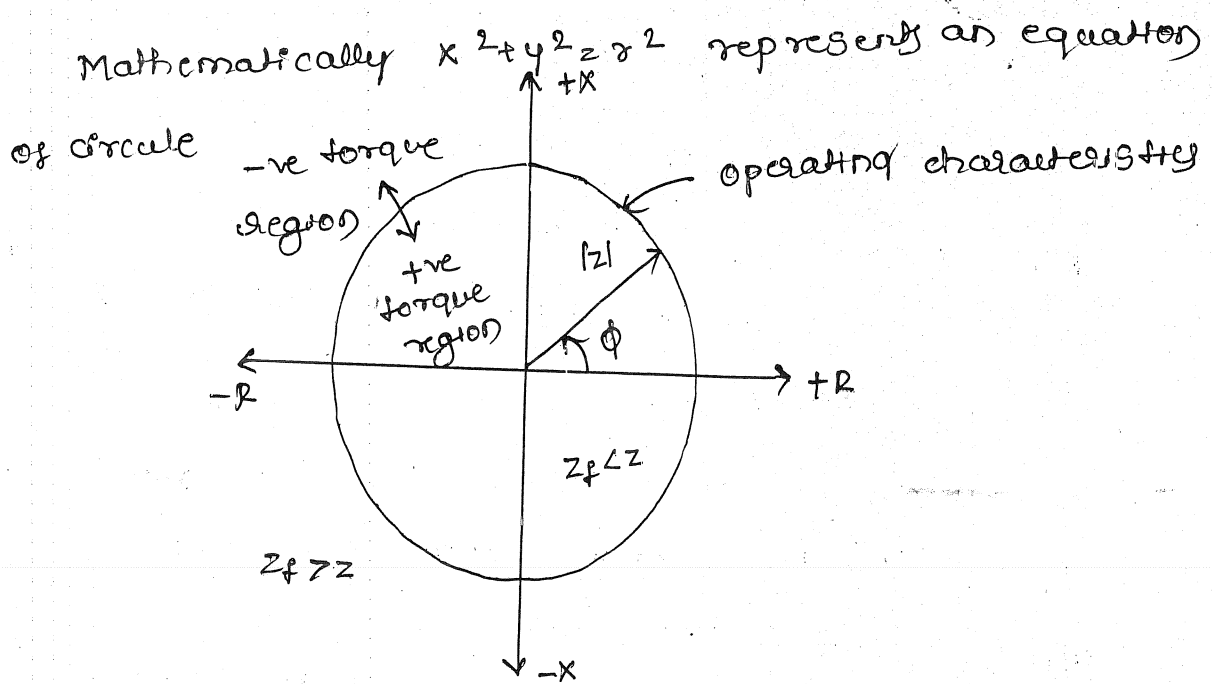 Mathematically x²+y²=r² represents an equation
+X
of circule
-ve torque
region
operating characteristics
+ve
torque
region
|z|
ϕ
-R
+R
Zf<Z
Zf>Z
-X